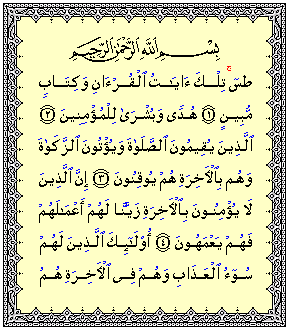 بِسْمِ ٱللَّهِ ٱلرَّحْمَٰنِ ٱلرَّحِيمِ
طسٓ ۚ تِلْكَ ءَايَٰتُ ٱلْقُرْءَانِ وَكِتَابٍ
مُّبِينٍ ١ هُدًى وَبُشْرَىٰ لِلْمُؤْمِنِينَ ٢
ٱلَّذِينَ يُقِيمُونَ ٱلصَّلَوٰةَ وَيُؤْتُونَ ٱلزَّكَوٰةَ
وَهُم بِٱلْءَاخِرَةِ هُمْ يُوقِنُونَ ٣ إِنَّ ٱلَّذِينَ
لَا يُؤْمِنُونَ بِٱلْءَاخِرَةِ زَيَّنَّا لَهُمْ أَعْمَٰلَهُمْ
فَهُمْ يَعْمَهُونَ ٤ أُو۟لَٰٓئِكَ ٱلَّذِينَ لَهُمْ
سُوٓءُ ٱلْعَذَابِ وَهُمْ فِى ٱلْءَاخِرَةِ هُمُ